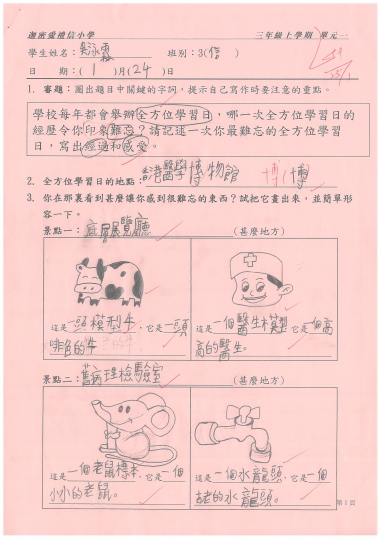 迦密愛禮信小學 三年級上學期 單元一
學生姓名： 班別：3(信)
日 期：(1)月(24)日
1. 審題：圈出題目中關鍵的字詞，提示自己寫作時要注意的重點。
學校每年都會舉辦全方位學習日，哪一次全方位學習日的
經歷令你印象難忘？請記述一次你最難忘的全方位學習
日，寫出經過和感受。
2. 全方位學習日的地點：香港醫學博物館 博 博
3. 你在那裏看到甚麼讓你感到很難忘的東西？試把它畫出來，並簡單形
容一下。
景點一：底層展覽廳 (甚麼地方)
這是一頭模型牛，它是一頭
啡色的牛
這是一個醫生模型，它是個高
高的醫生。
景點二：舊病理檢驗室 (甚麼地方)
這是一個老鼠標本，它是一個
小小的老鼠。
這是一個水龍頭，它是一個
古老的水龍頭。
第1頁